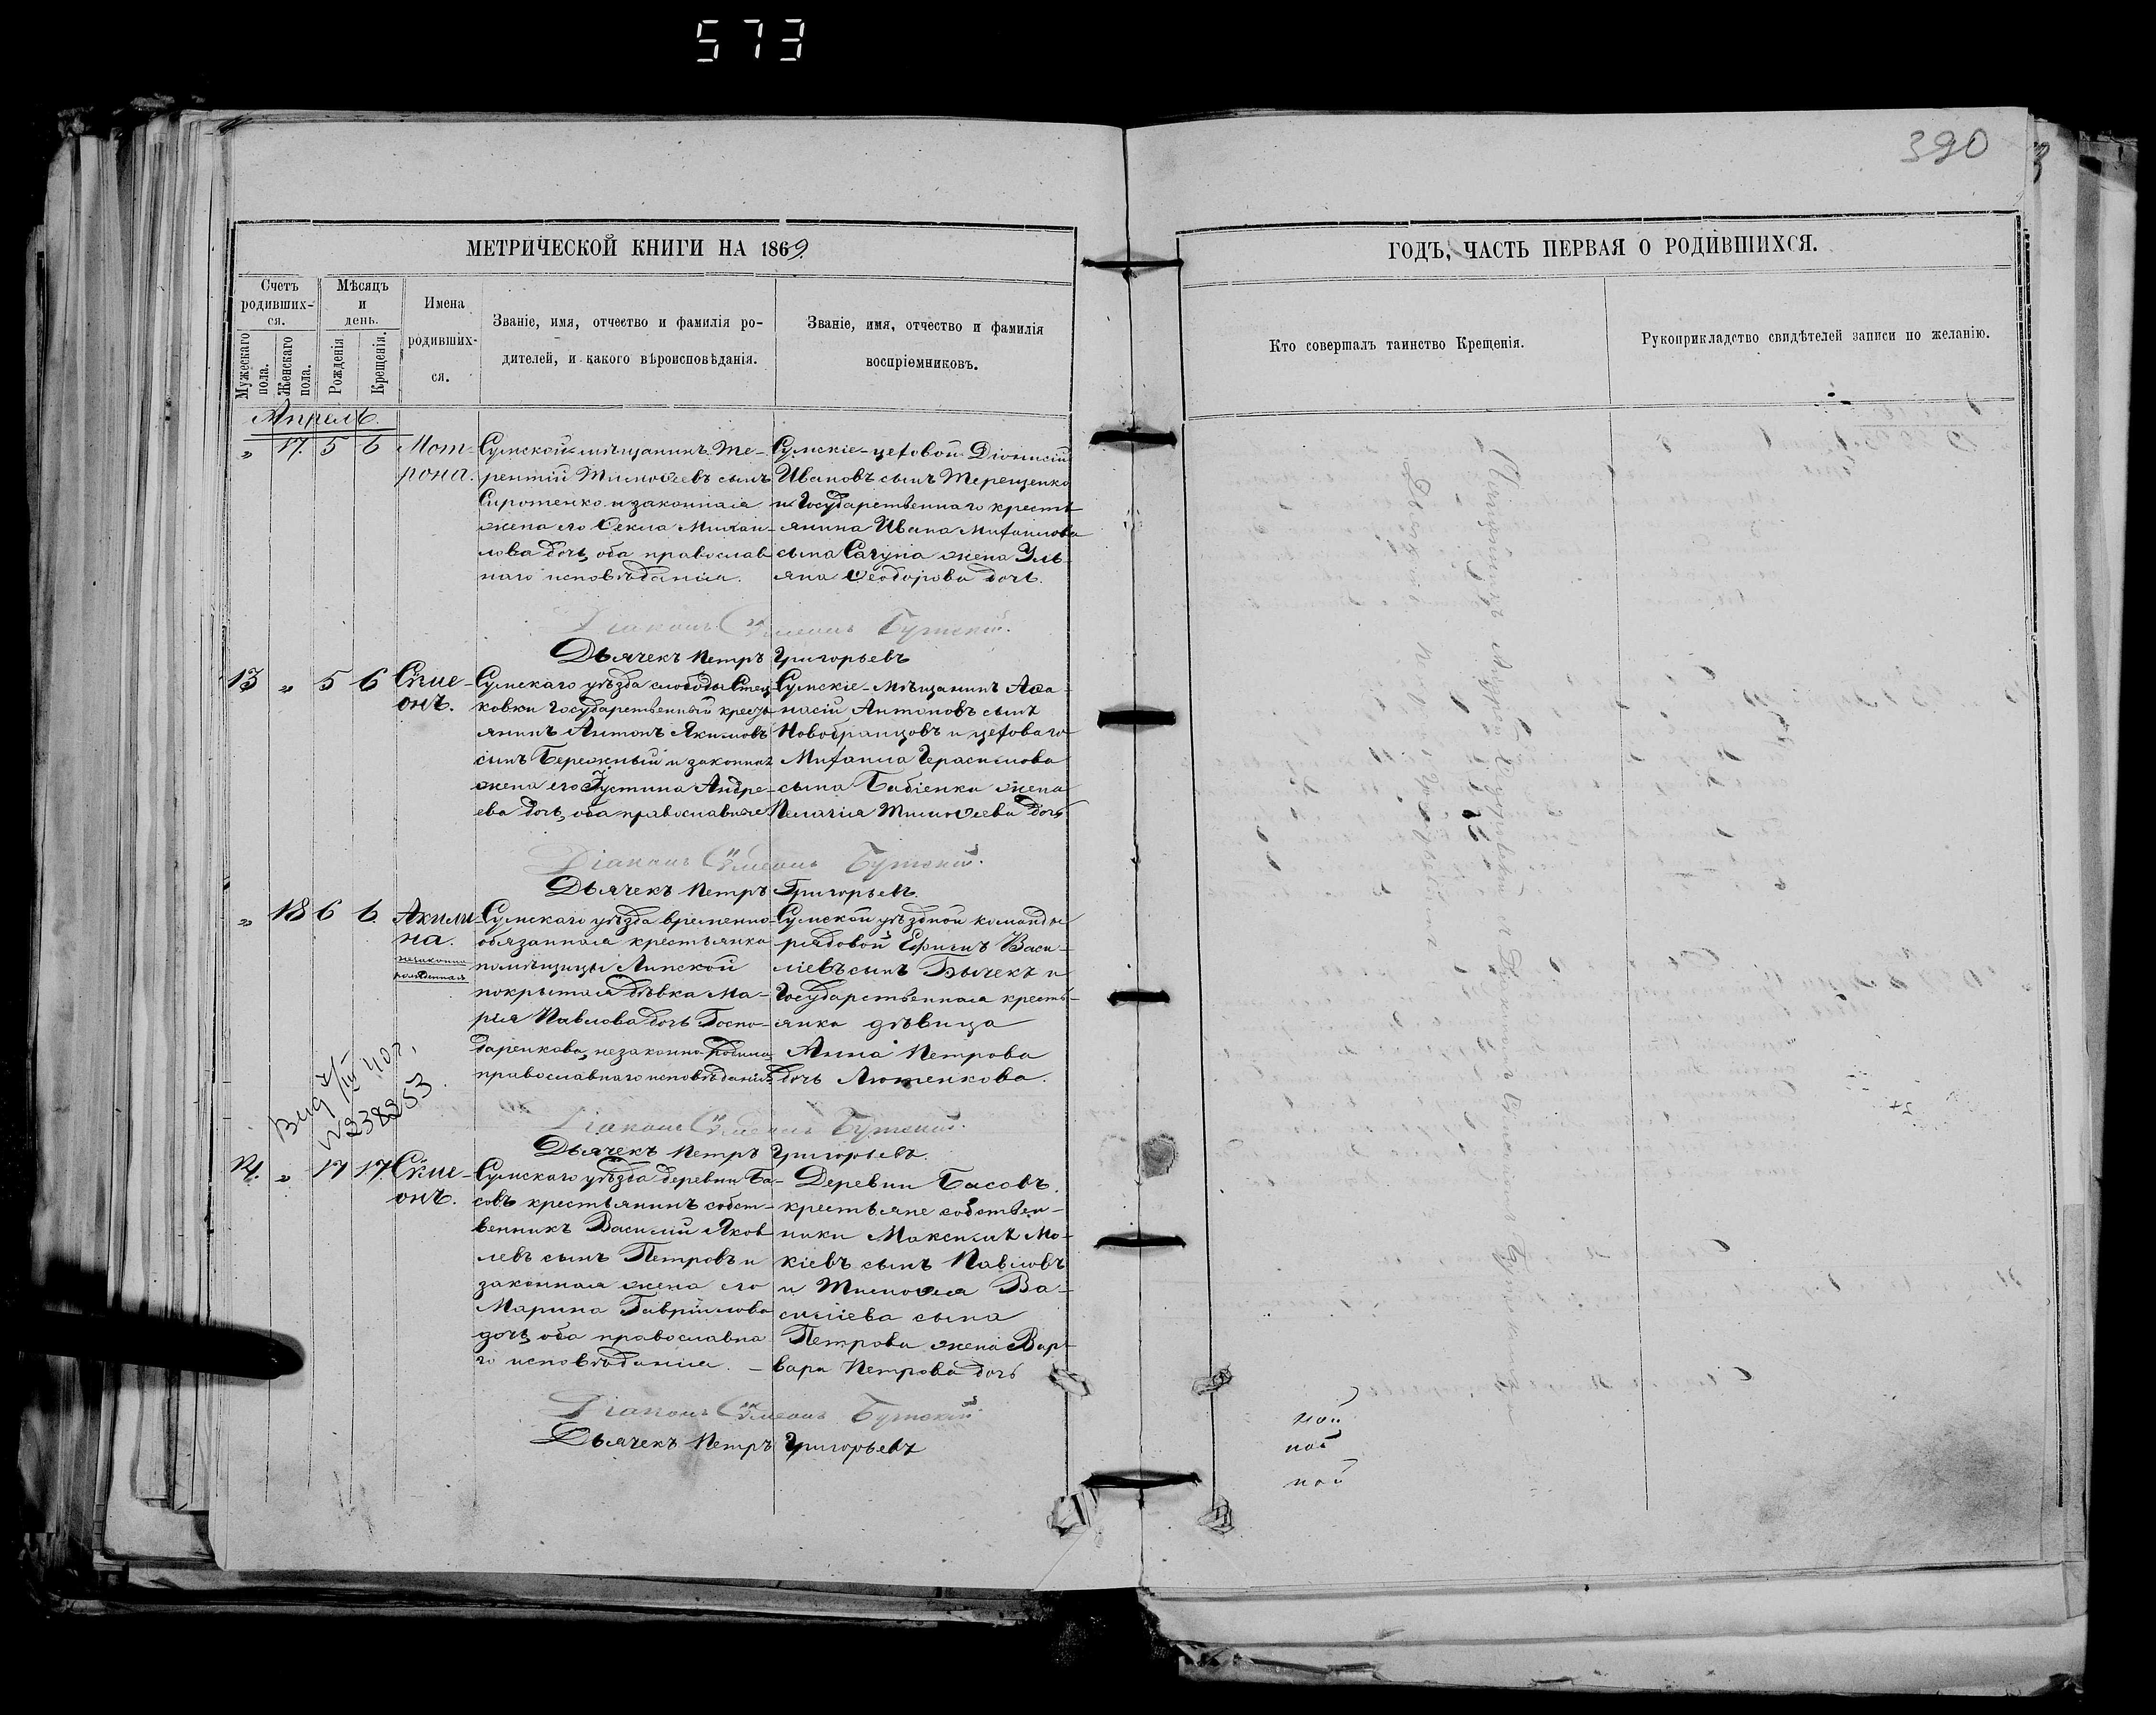 573
390
МЕТРИЧЕСКОЙ КНИГИ НА 1869.
ГОДЪ, ЧАСТЬ ПЕРВАЯ О РОДИВШИХСЯ.
Счетъ родивших-ся.
Мужескаго пола.
Женскаго пола.
Мѣсяцъ и день.
Рожденія.
Крещенія.
Имена родивших-ся.
Званіе, имя, отчество и фамилія ро-
дителей, и какого вѣроисповѣданія.
Званіе, имя, отчество и фамилія
воспріемниковъ.
Кто совершалъ таинство Крещенія.
Рукоприкладство свидѣтелей записи по желанію.
Апрель.
" 17. 5 6 Мот-
рона.
Сумской мѣщанинъ Те-
рентій Тимоѳеевъ сынъ
Сиротенко и законная
жена его Ѳекла Михаи-
лова дочь, оба православ
наго исповѣданія.
Сумскіе - цеховой Діонисій
Ивановъ сынъ Терещенко
и Государственнаго кресть
янина Ивана Михаилова
сына Сагуна жена Уль-
яна Ѳеодорова дочь.
Діаконъ Сѵмеонъ
Дьячекъ Петръ Григорьевъ
13 " 5 6 Сѵме-
онъ.
Сумскаго уѣзда слободы Стец-
ковки Государственный кресть
янинъ Антонъ Якимовъ
сынъ Бережный и законная
жена его Іустина Андре-
ева дочь, оба православные
Сумскіе - мѣщанинъ Аѳа-
насій Антоновъ сынъ
Новобранцовъ и цеховаго
Михаила Герасимова
сына Бабіенка жена
Пелагія Тимоѳеева дочь
Діаконъ Сѵмеонъ
Дьячекъ Петръ Григорьевъ
" 18 6 6 Акили-
на.
незаконно
рожденная
Сумскаго уѣзда временно-
обязанная крестьянка
помѣщицы Липской
покрытая дѣвка Ма-
рія Павлова дочь Госпо-
даренкова, незаконно родила,
православнаго исповѣданія.
Сумской уѣздной команды
рядовой Ефимъ Васи-
ліевъ сынъ Бычекъ и
Государственная кресть-
янка дѣвица
Анна Петрова
дочь Лютенкова.
Вид 7/III 40 г.
Діаконъ Сѵмеонъ
Дьячекъ Петръ Григорьевъ.
14. " 17 17. Сѵме-
онъ.
Сумскаго уѣзда деревни Ба-
совъ крестьянинъ собст-
венникъ Василій Яков
левъ сынъ Петровъ и
законная жена его
Марина Гавріилова
дочь, оба православна
го исповѣданія. -
Деревни Басовъ
крестьяне собствен-
ники Максимъ Мо-
кіевъ сынъ Павловъ
и Тимоѳея Ва-
силіева сына
Петрова жена Вар-
вара Петрова дочь
Діаконъ Сѵмеонъ
Дьячекъ Петръ Григорьевъ
ной
ной
ной